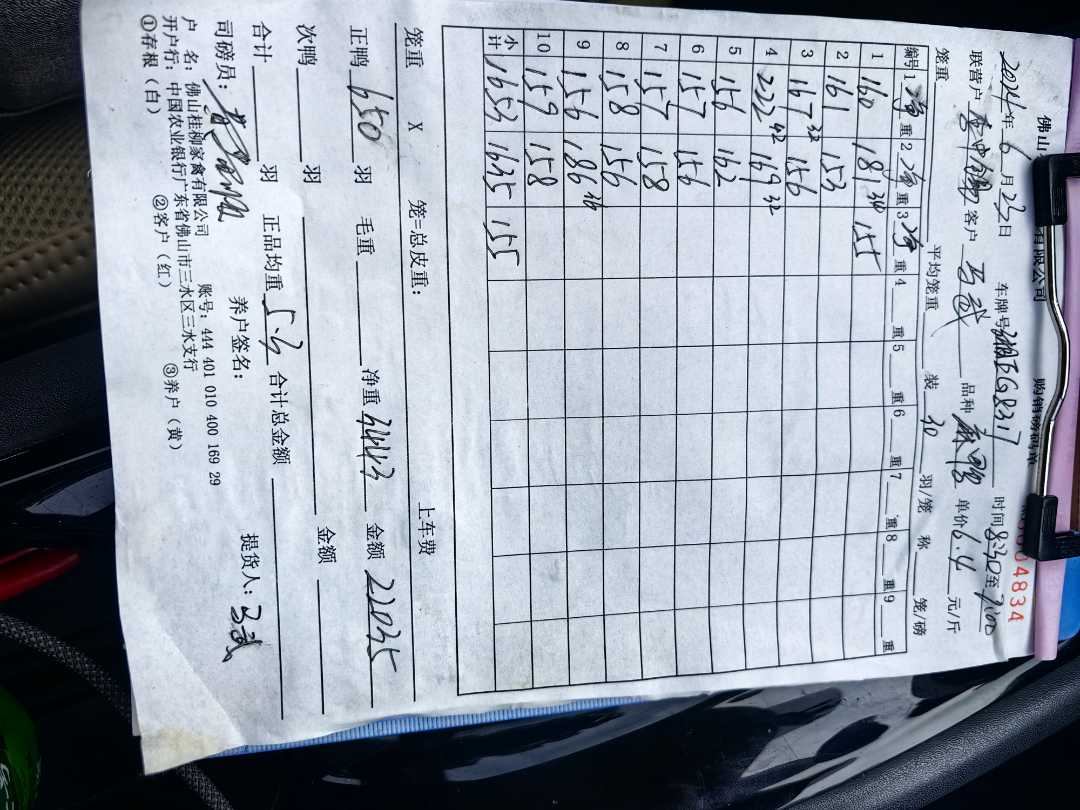 佛山 有限公司 购销磅码单
04834
2024年6月23日 车牌号 EG8317 时间8:30至9:00
联营户 客户 马武 品种 麻鸭 单价6.4元/斤
笼重 平均笼重 装30羽/笼 称 笼/磅
编号 1净重 2净重 3净重 4 重 5 重 6 重 7 重 8 重 9 重
1 160 181 36 155
2 161 153
3 167 32 156
4 222 42 169 32
5 156 162
6 157 156
7 157 158
8 158 156
9 156 186 36
10 159 158
小计 1653 1635 155
笼重 X 笼=总皮重: 上车费
正鸭 650 羽 毛重 净重 3443 金额 22035
次鸭 羽 金额
合计 羽 正品均重 5.3 合计总金额
司磅员: 养户签名: 提货人: 马武
户 名: 佛山桂柳家禽有限公司 账号: 444 401 010 400 169 29
开户行: 中国农业银行广东省佛山市三水区三水支行
①存根(白) ②客户(红) ③养户(黄)